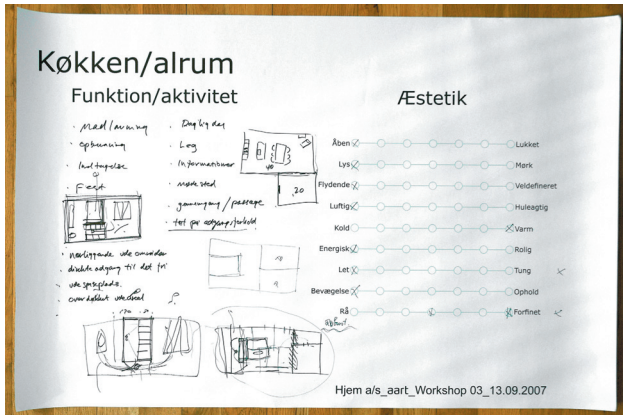 Køkken/alrum
Funktion/aktivitet
Æstetik
· Madlavning
· opbevaring
· Indtagelse
· Fest
· Daglig dag
· Leg
· Informationer
· mødested
· gennemgang / passage
· tæt på adgangsforhold
40
20
· nærliggende ude områder
· direkte adgang til det fri
· ude spiseplads.
· overdækket udeareal
Åben Lukket
Lys Mørk
Flydende Veldefineret
Luftig Huleagtig
Kold Varm
Energisk Rolig
Let Tung
Bevægelse Ophold
Rå Forfinet
Robust
Hjem a/s_aart_Workshop 03_13.09.2007